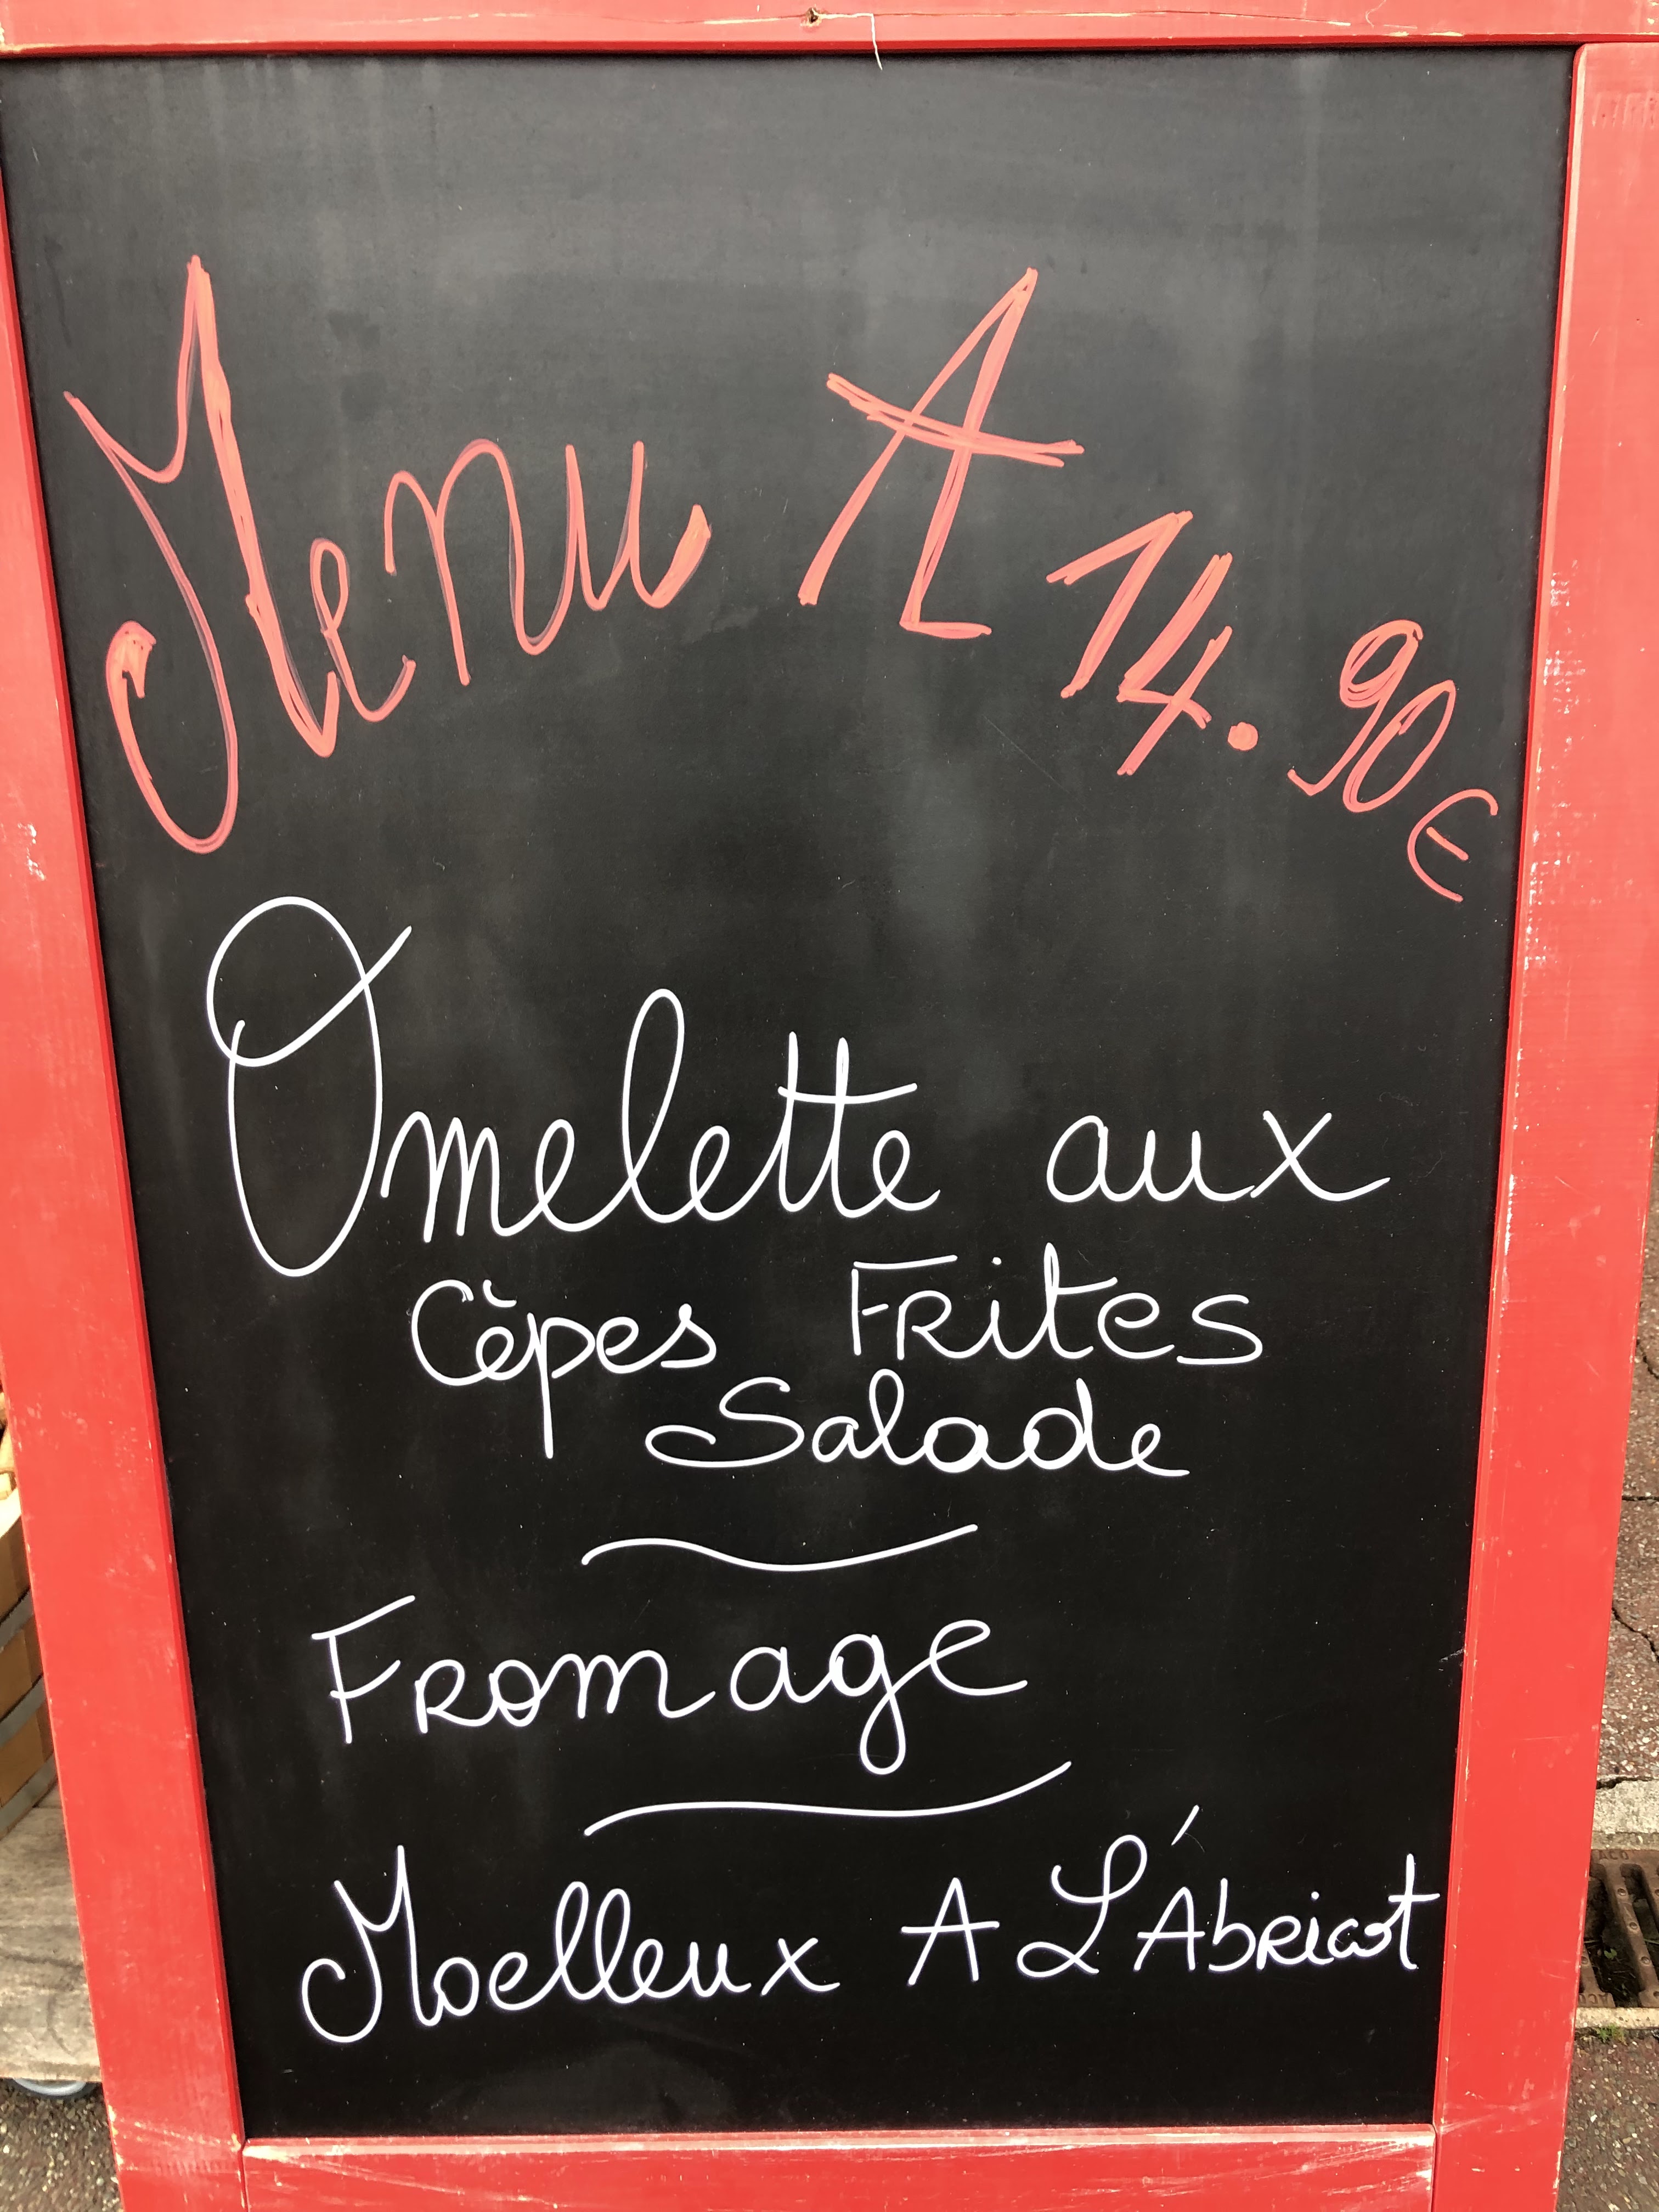 Menu A 14.90€
Omelette aux
Cèpes Frites
Salade
Fromage
Moelleux A L'Abricot